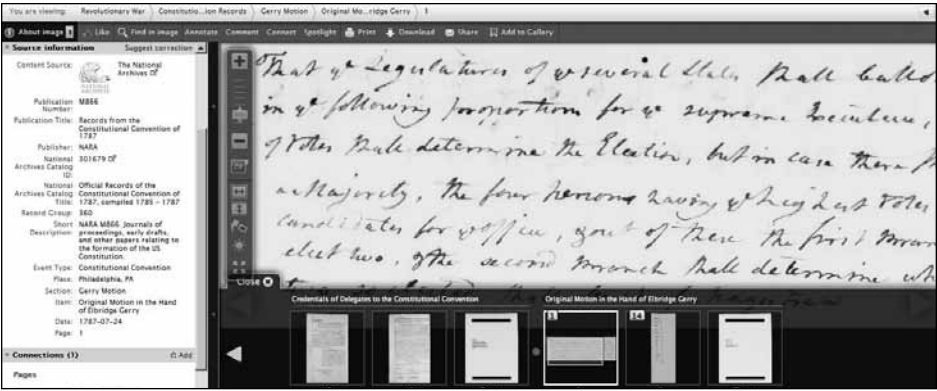 You are viewing: Revolutionary War Constitutio...ion Records Gerry Motion Original Mo...ridge Gerry 1
About image Like Find in image Annotate Comment Connect Spotlight Print Download Share Add to Gallery
Source information Suggest correction
Content Source: The National Archives
NATIONAL ARCHIVES
Publication Number: M866
Publication Title: Records from the Constitutional Convention of 1787
Publisher: NARA
National Archives Catalog ID: 301679
National Archives Catalog Title: Official Records of the Constitutional Convention of 1787, compiled 1785 - 1787
Record Group: 360
Short Description: NARA M866. Journals of proceedings, early drafts, and other papers relating to the formation of the US Constitution.
Event Type: Constitutional Convention
Place: Philadelphia, PA
Section: Gerry Motion
Item: Original Motion in the Hand of Elbridge Gerry
Date: 1787-07-24
Page: 1
Connections (1) Add
Pages
That ye Legislatures of ye several States shall ballo
in ye following proportions for ye supreme
of Votes shall determine the Election, but in case there
a Majority, the four persons having ye highest Votes
candidates for ye office, & out of these the first
elect two, & the second Branch shall determine
Close
Credentials of Delegates to the Constitutional Convention
Original Motion in the Hand of Elbridge Gerry
1
14